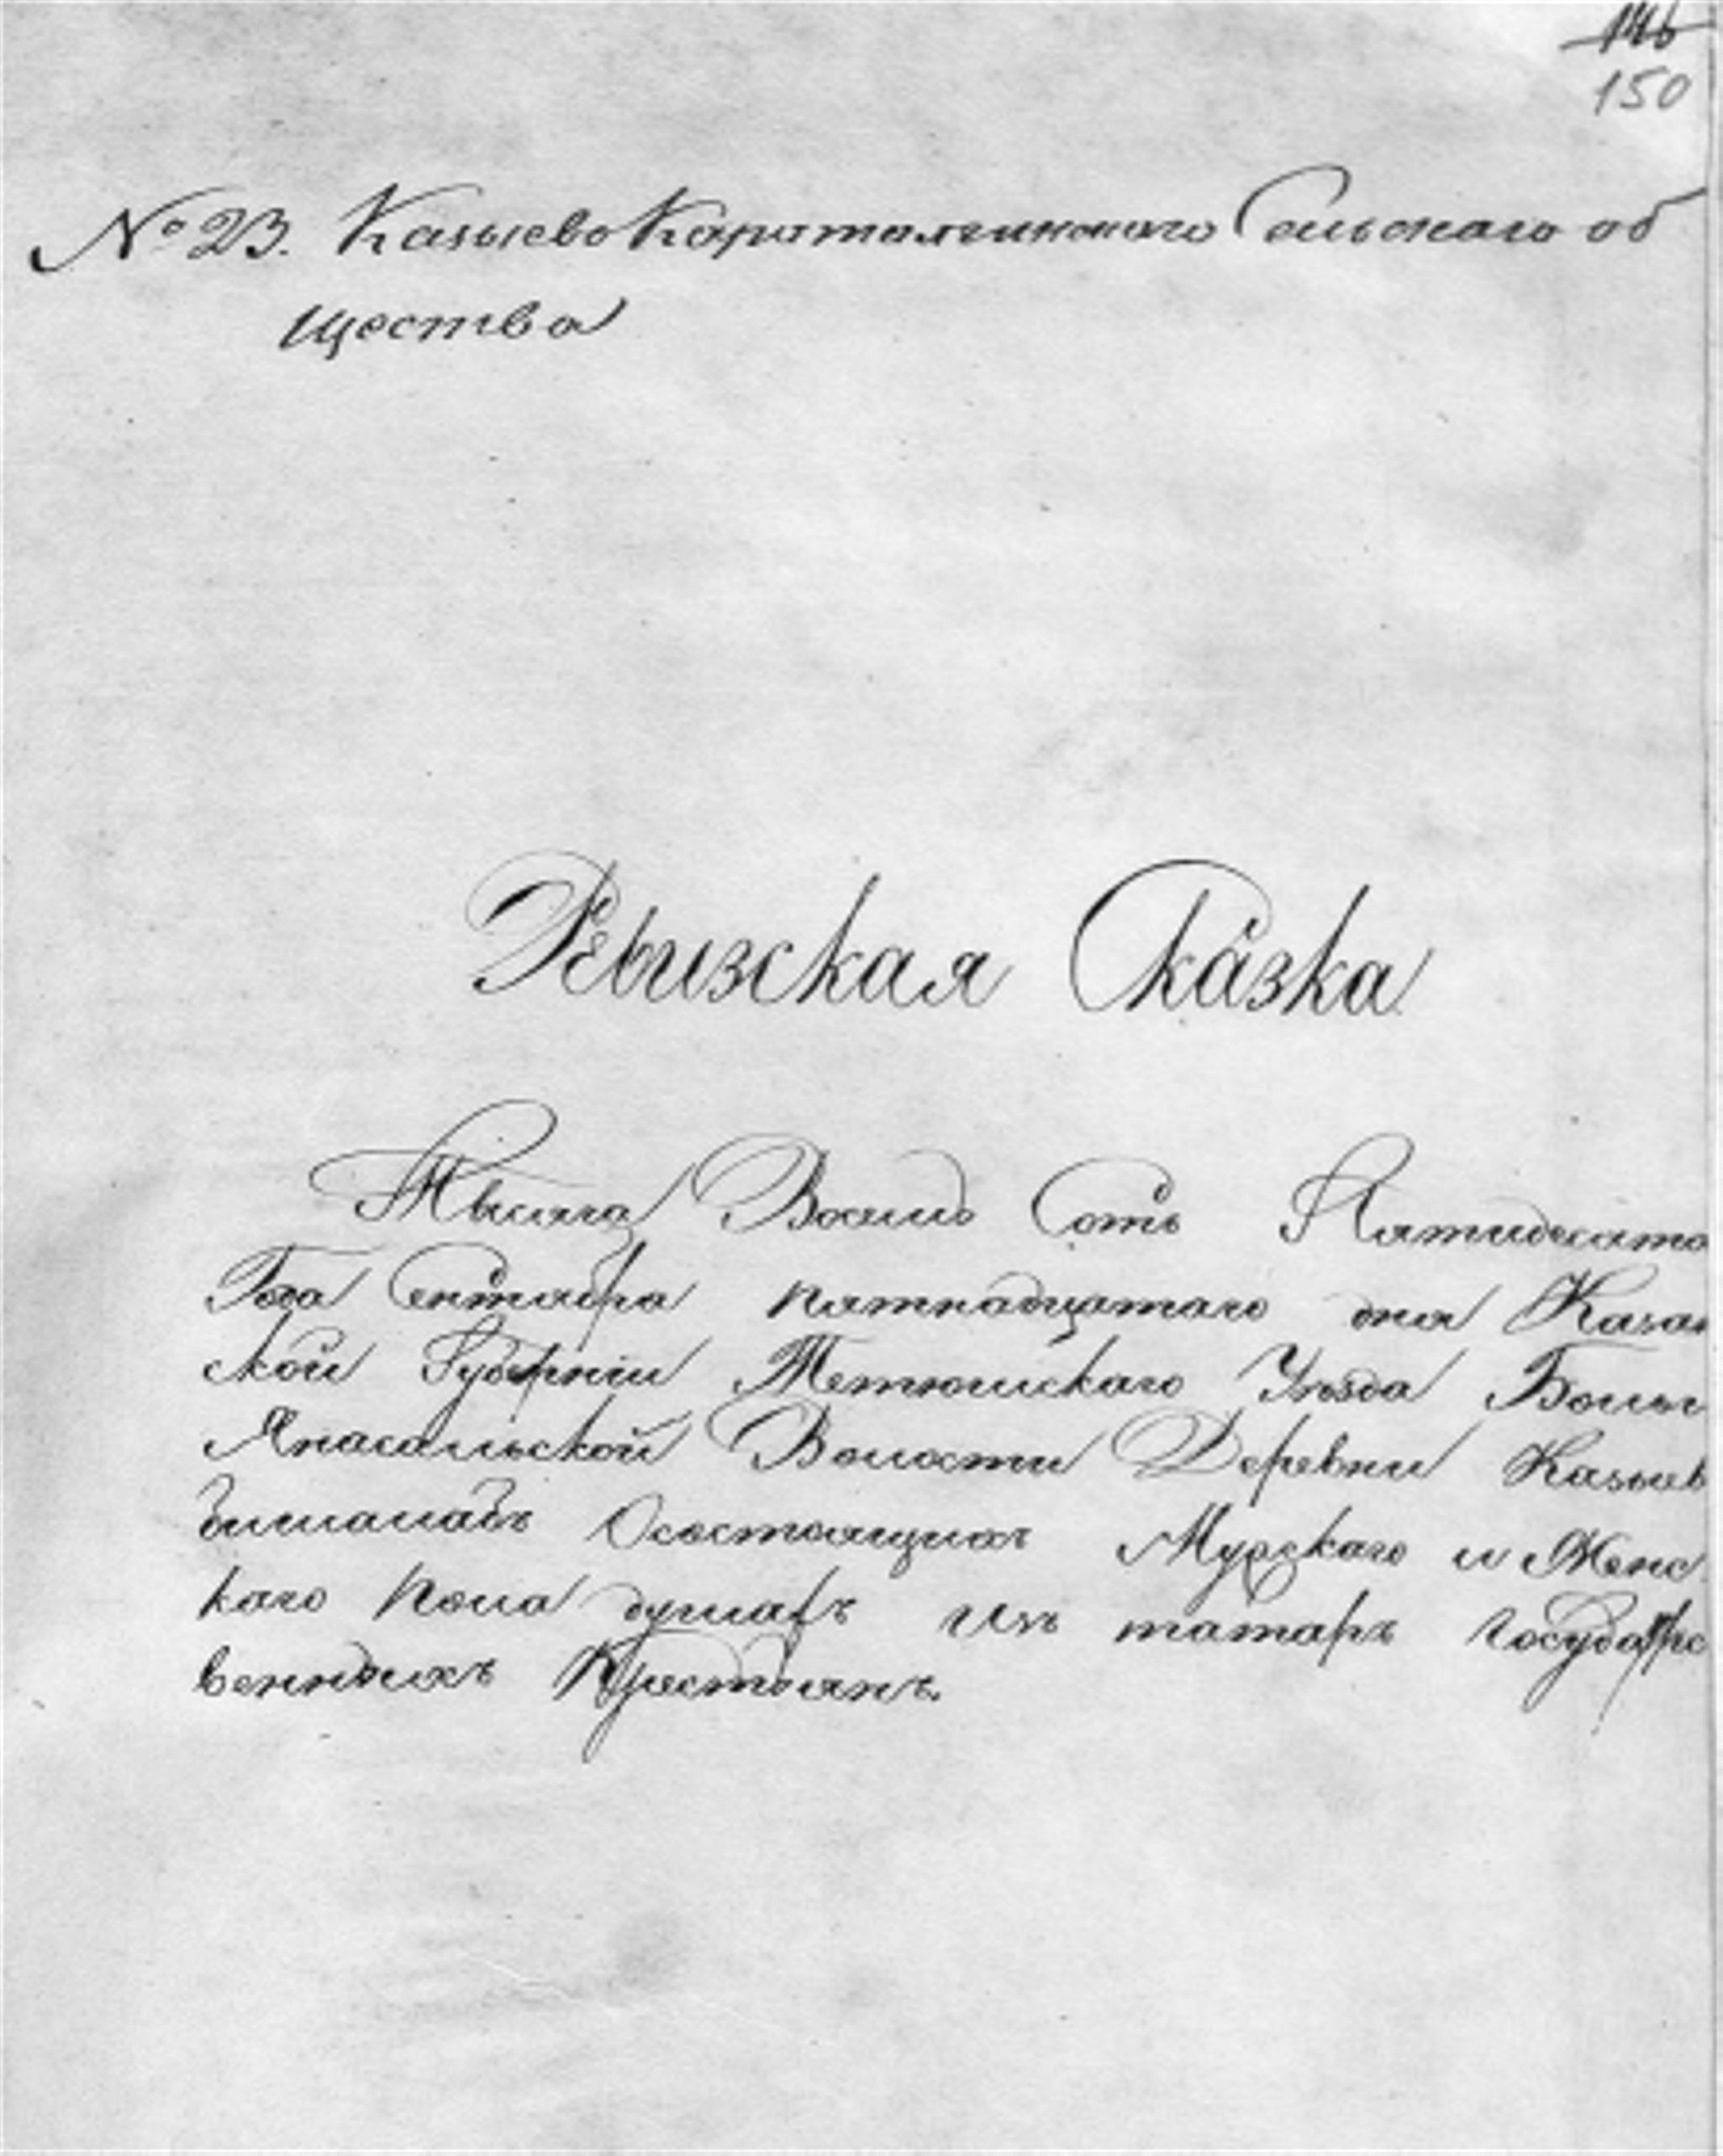 146
150
№ 23. Казыево Караталгинскаго Сельскаго об
щества
Ревизская Сказка
Тысяча Восемь Сотъ Пятидесято
Года Сентября пятнадцатаго дня Казан
ской Губерніи Тетюшскаго Уѣзда Больш
Анасальской Волости Деревни Казыев
Осостоящихъ Мужскаго и Женс
каго пола душахъ Изъ татаръ государс
венныхъ Крестьянъ.